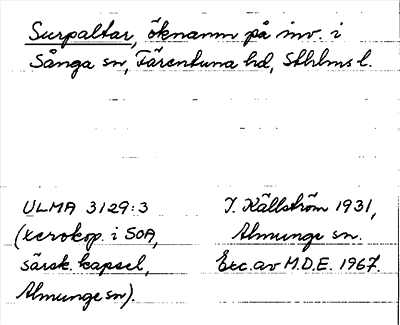 Surpaltar, öknamn på inv. i
Sånga sn, Färentuna hd, Sthlms l.
ULMA 3129:3
(xerokop. i SOA,
särsk. kapsel,
Almunge sn).
J. Källström 1931,
Almunge sn.
Exc. av M.D.E. 1967.